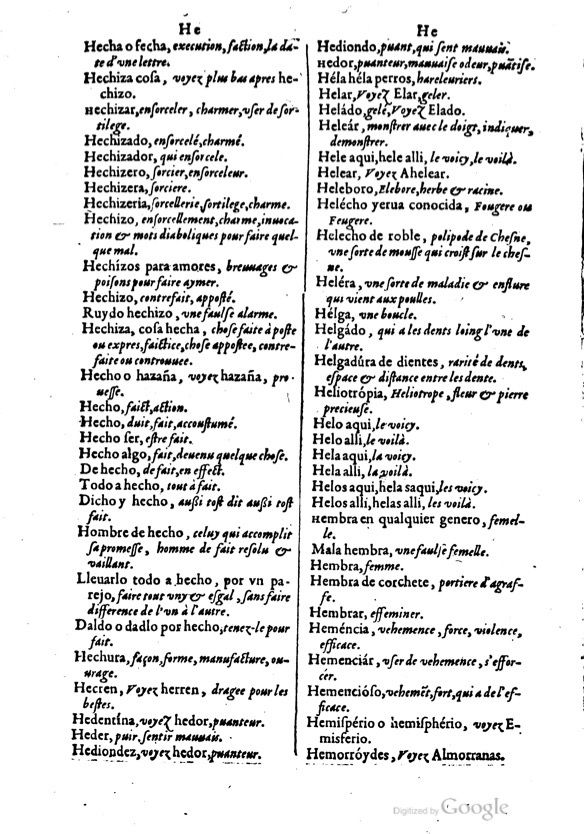 He
Hecha o fecha, execution, faction, la da-
te d'vne lettre.
Hechiza cosa, voyez plus bas apres he-
chizo.
Hechizar, ensorceler, charmer, vser de sor-
tilege.
Hechizado, ensorcelé, charmé.
Hechizador, qui ensorcele.
Hechizero, sorcier, ensorceleur.
Hechizera, sorciere.
Hechizeria, sorcellerie, sortilege, charme.
Hechizo, ensorcellement, charme, inuoca-
tion & mots diaboliques pour faire quel-
que mal.
Hechizos para amores, breuuages &
poisons pour faire aymer.
Hechizo, contrefait, apposté.
Ruydo hechizo, vne faulse alarme.
Hechiza, cosa hecha, chose faite à poste
ou expres, faictice, chose appostee, contre-
faite ou controuuee.
Hecho o hazaña, voyez hazaña, pro-
uesse.
Hecho, faict, action.
Hecho, duit, fait, accoustumé.
Hecho ser, estre fait.
Hecho algo, fait, deuenu quelque chose.
De hecho, de fait, en effect.
Todo a hecho, tout à fait.
Dicho y hecho, aussi tost dit aussi tost
fait.
Hombre de hecho, celuy qui accomplit
sa promesse, homme de fait resolu &
vaillant.
Lleuarlo todo a hecho, por vn pa-
rejo, faire tout vny & esgal, sans faire
difference de l'vn à l'autre.
Daldo o dadlo por hecho, tenez-le pour
fait.
Hechura, façon, forme, manufacture, ou-
urage.
Hecren, Voyez herren, dragee pour les
bestes.
Hedentina, voyez hedor, puanteur.
Heder, puir, sentir mauuais.
Hediondez, voyez hedor, puanteur.
He
Hediondo, puant, qui sent mauuais.
Hedor, puanteur, mauuaise odeur, puātise.
Héla héla perros, hareleuriers.
Helar, Voyez Elar, geler.
Heládo, gelé, Voyez Elado.
Heleár, monstrer auec le doigt, indiquer,
demonstrer.
Hele aqui, hele alli, le voicy, le voilà.
Helear, Voyez Ahelear.
Heleboro, Elebore, herbe & racine.
Helécho yerua conocida, Fougere ou
Feugere.
Helecho de roble, polipode de Chesne,
vne sorte de mousse qui croist sur le ches-
ne.
Heléra, vne sorte de maladie & enflure
qui vient aux poulles.
Hélga, vne boucle.
Helgádo, qui a les dents loing l'vne de
l'autre.
Helgadûra de dientes, rarité de dents,
espace & distance entre les dents.
Heliotrópia, Heliotrope, fleur & pierre
precieuse.
Helo aqui, le voicy.
Helo alli, le voilà.
Hela aqui, la voicy.
Hela alli, la voilà.
Helos aqui, hela saqui, les voicy.
Helos alli, helas alli, les voilà.
Hembra en qualquier genero, femel-
le.
Mala hembra, vne faulse femelle.
Hembra, femme.
Hembra de corchete, portiere d'agraf-
fe.
Hembrar, effeminer.
Heméncia, vehemence, force, violence,
efficace.
Hemenciár, vser de vehemence, s'effor-
cer.
Hemencióso, vehemēt, fort, qui a de l'ef-
ficace.
Hemispério o hemisphério, voyez E-
misferio.
Hemorróydes, Voyez Almorranas.
Digitized by Google